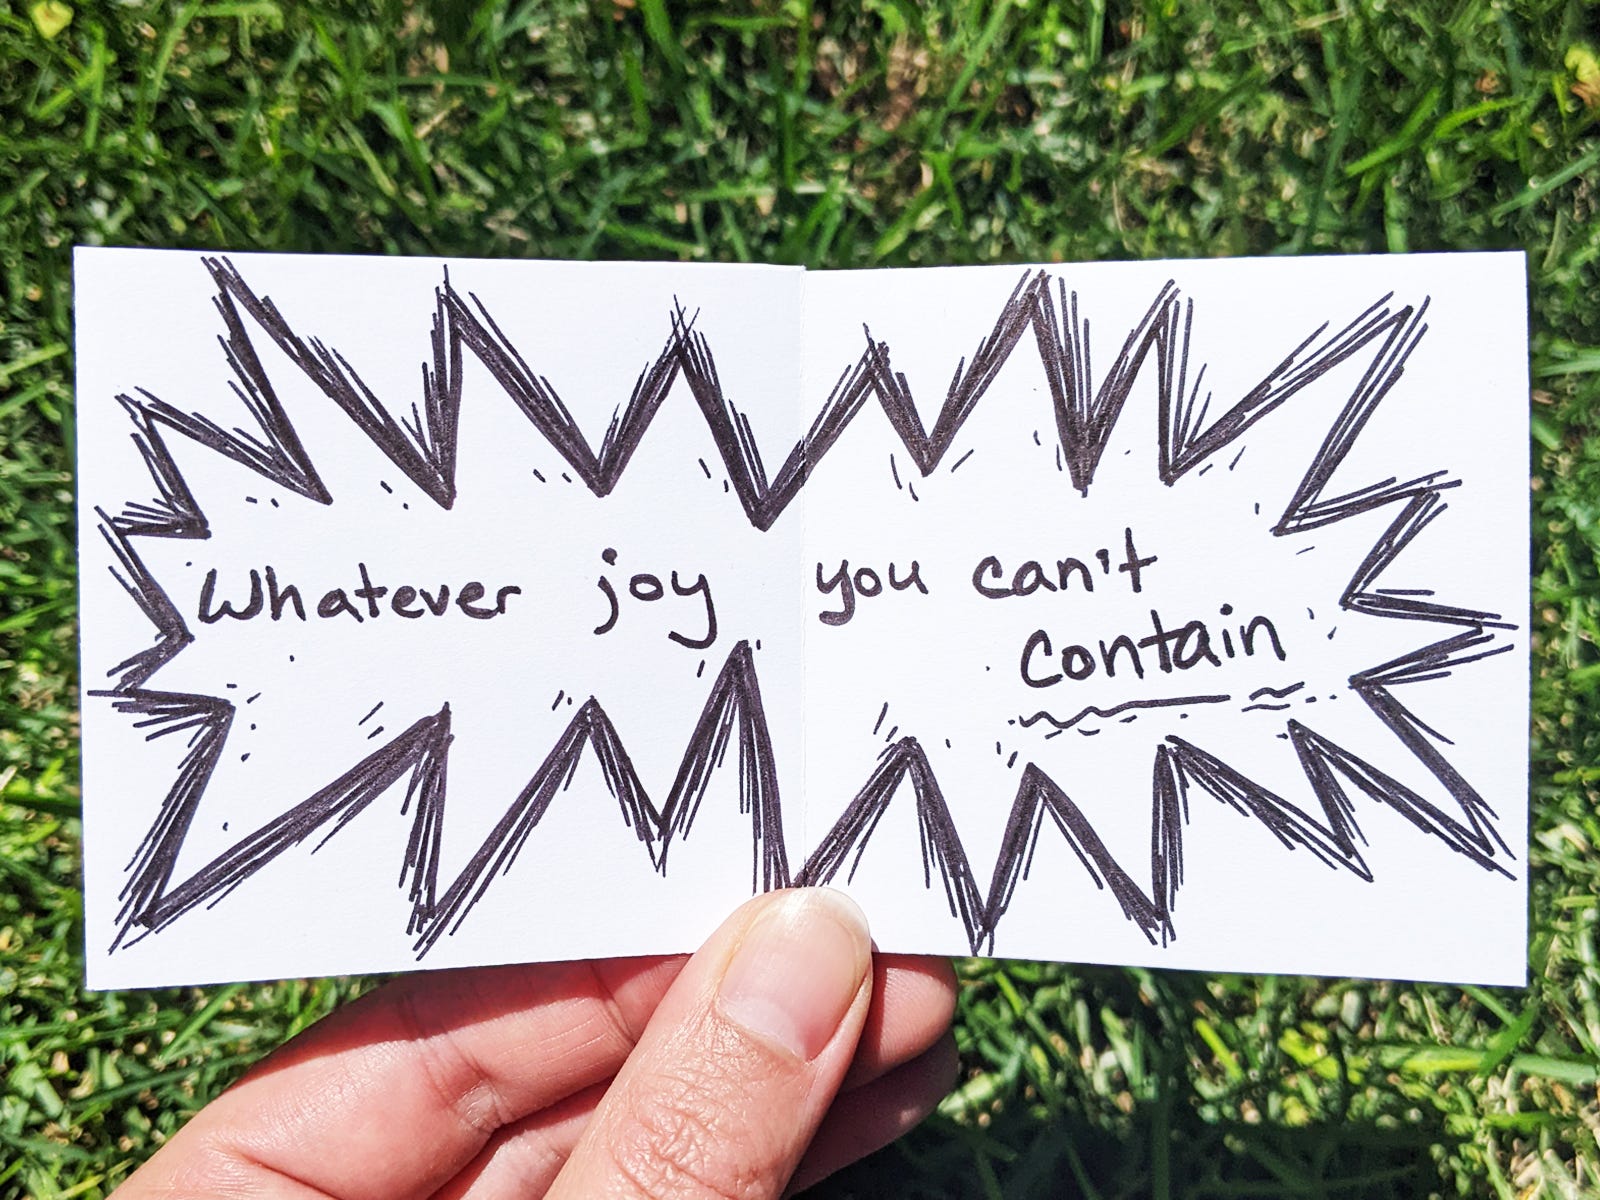 Whatever joy you can't
contain